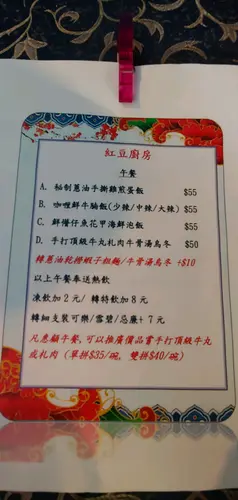 紅豆廚房
午餐
A. 秘制蔥油手撕雞煎蛋飯 $55
B. 咖喱鮮牛腩飯(少辣/中辣/大辣) $55
C. 鮮檸仔魚花甲海鮮泡飯 $55
D. 手打頂級牛丸札肉牛骨湯烏冬 $50
轉蔥油乾撈蝦子粗麵/牛骨湯烏冬 +$10
以上午餐奉送熱飲
凍飲加2元/ 轉特飲加8元
轉細支裝可樂/雪碧/忌廉+ 7元
凡惠顧午餐,可以推廣價品嘗手打頂級牛丸
或札肉 (單拼$35/碗, 雙拼$40/碗)